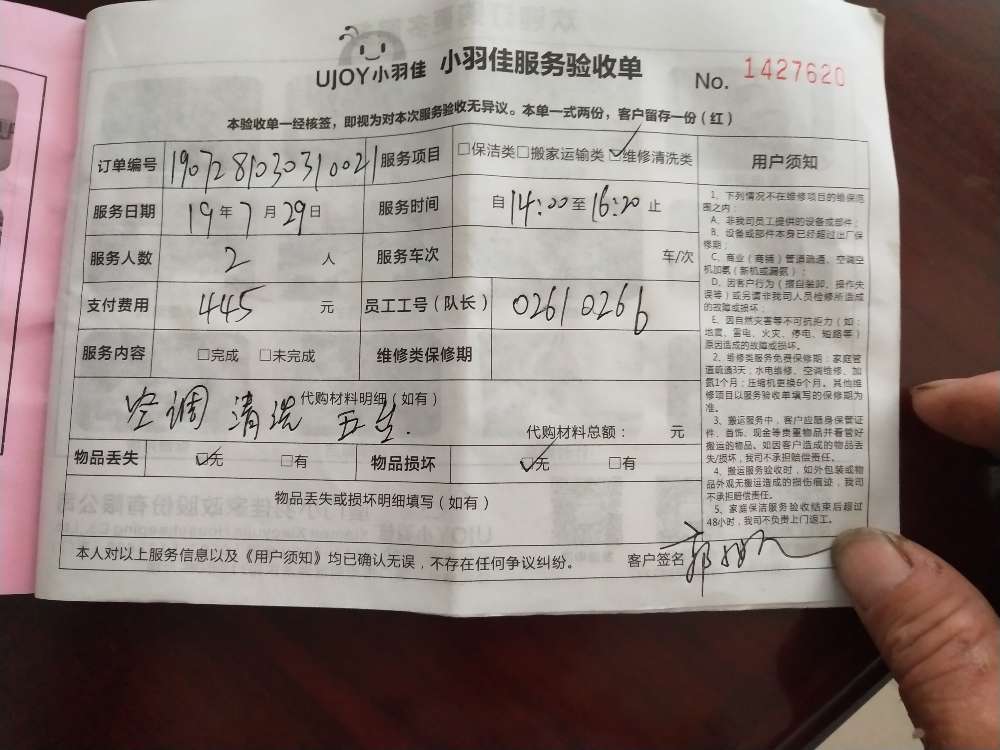 UJOY小羽佳 小羽佳服务验收单 No. 1427620
本验收单一经核签，即视为对本次服务验收无异议。本单一式两份，客户留存一份（红）
订单编号 190728103031 0021 服务项目 □保洁类□搬家运输类☑维修清洗类
服务日期 19年7月29日 服务时间 自14:00至16:20止
服务人数 2 人 服务车次 车/次
支付费用 445 元 员工工号（队长） 0261 0266
服务内容 □完成 □未完成 维修类保修期
代购材料明细（如有）
空调清洗五台.
代购材料总额： 元
物品丢失 ☑无 □有 物品损坏 ☑无 □有
物品丢失或损坏明细填写（如有）
本人对以上服务信息以及《用户须知》均已确认无误，不存在任何争议纠纷。 客户签名
用户须知
1、下列情况不在维修项目的维保范
围之内：
A、非我司员工提供的设备或部件；
B、设备或部件本身已经超过出厂保
修期；
C、商业（商铺）管道疏通、空调空
机加氨（新机或漏氨）；
D、因客户行为（擅自装卸、操作失
误等）或另请非我司人员检修所造成
的故障或损坏；
E、因自然灾害等不可抗拒力（如：
地震、雷电、火灾、停电、短路等）
原因造成的故障或损坏。
2、维修类服务免费保修期：家庭管
道疏通3天；水电维修、空调维修、加
氨1个月；压缩机更换6个月。其他维
修项目以服务验收单填写的保修期为
准。
3、搬运服务中，客户应随身保管证
件、首饰、现金等贵重物品并看管好
搬运的物品。如因客户造成的物品丢
失/损坏，我司不承担赔偿责任。
4、搬运服务验收时，如外包装或物
品外观无搬运造成的损伤痕迹，我司
不承担赔偿责任。
5、家庭保洁服务验收结束后超过
48小时，我司不负责上门返工。